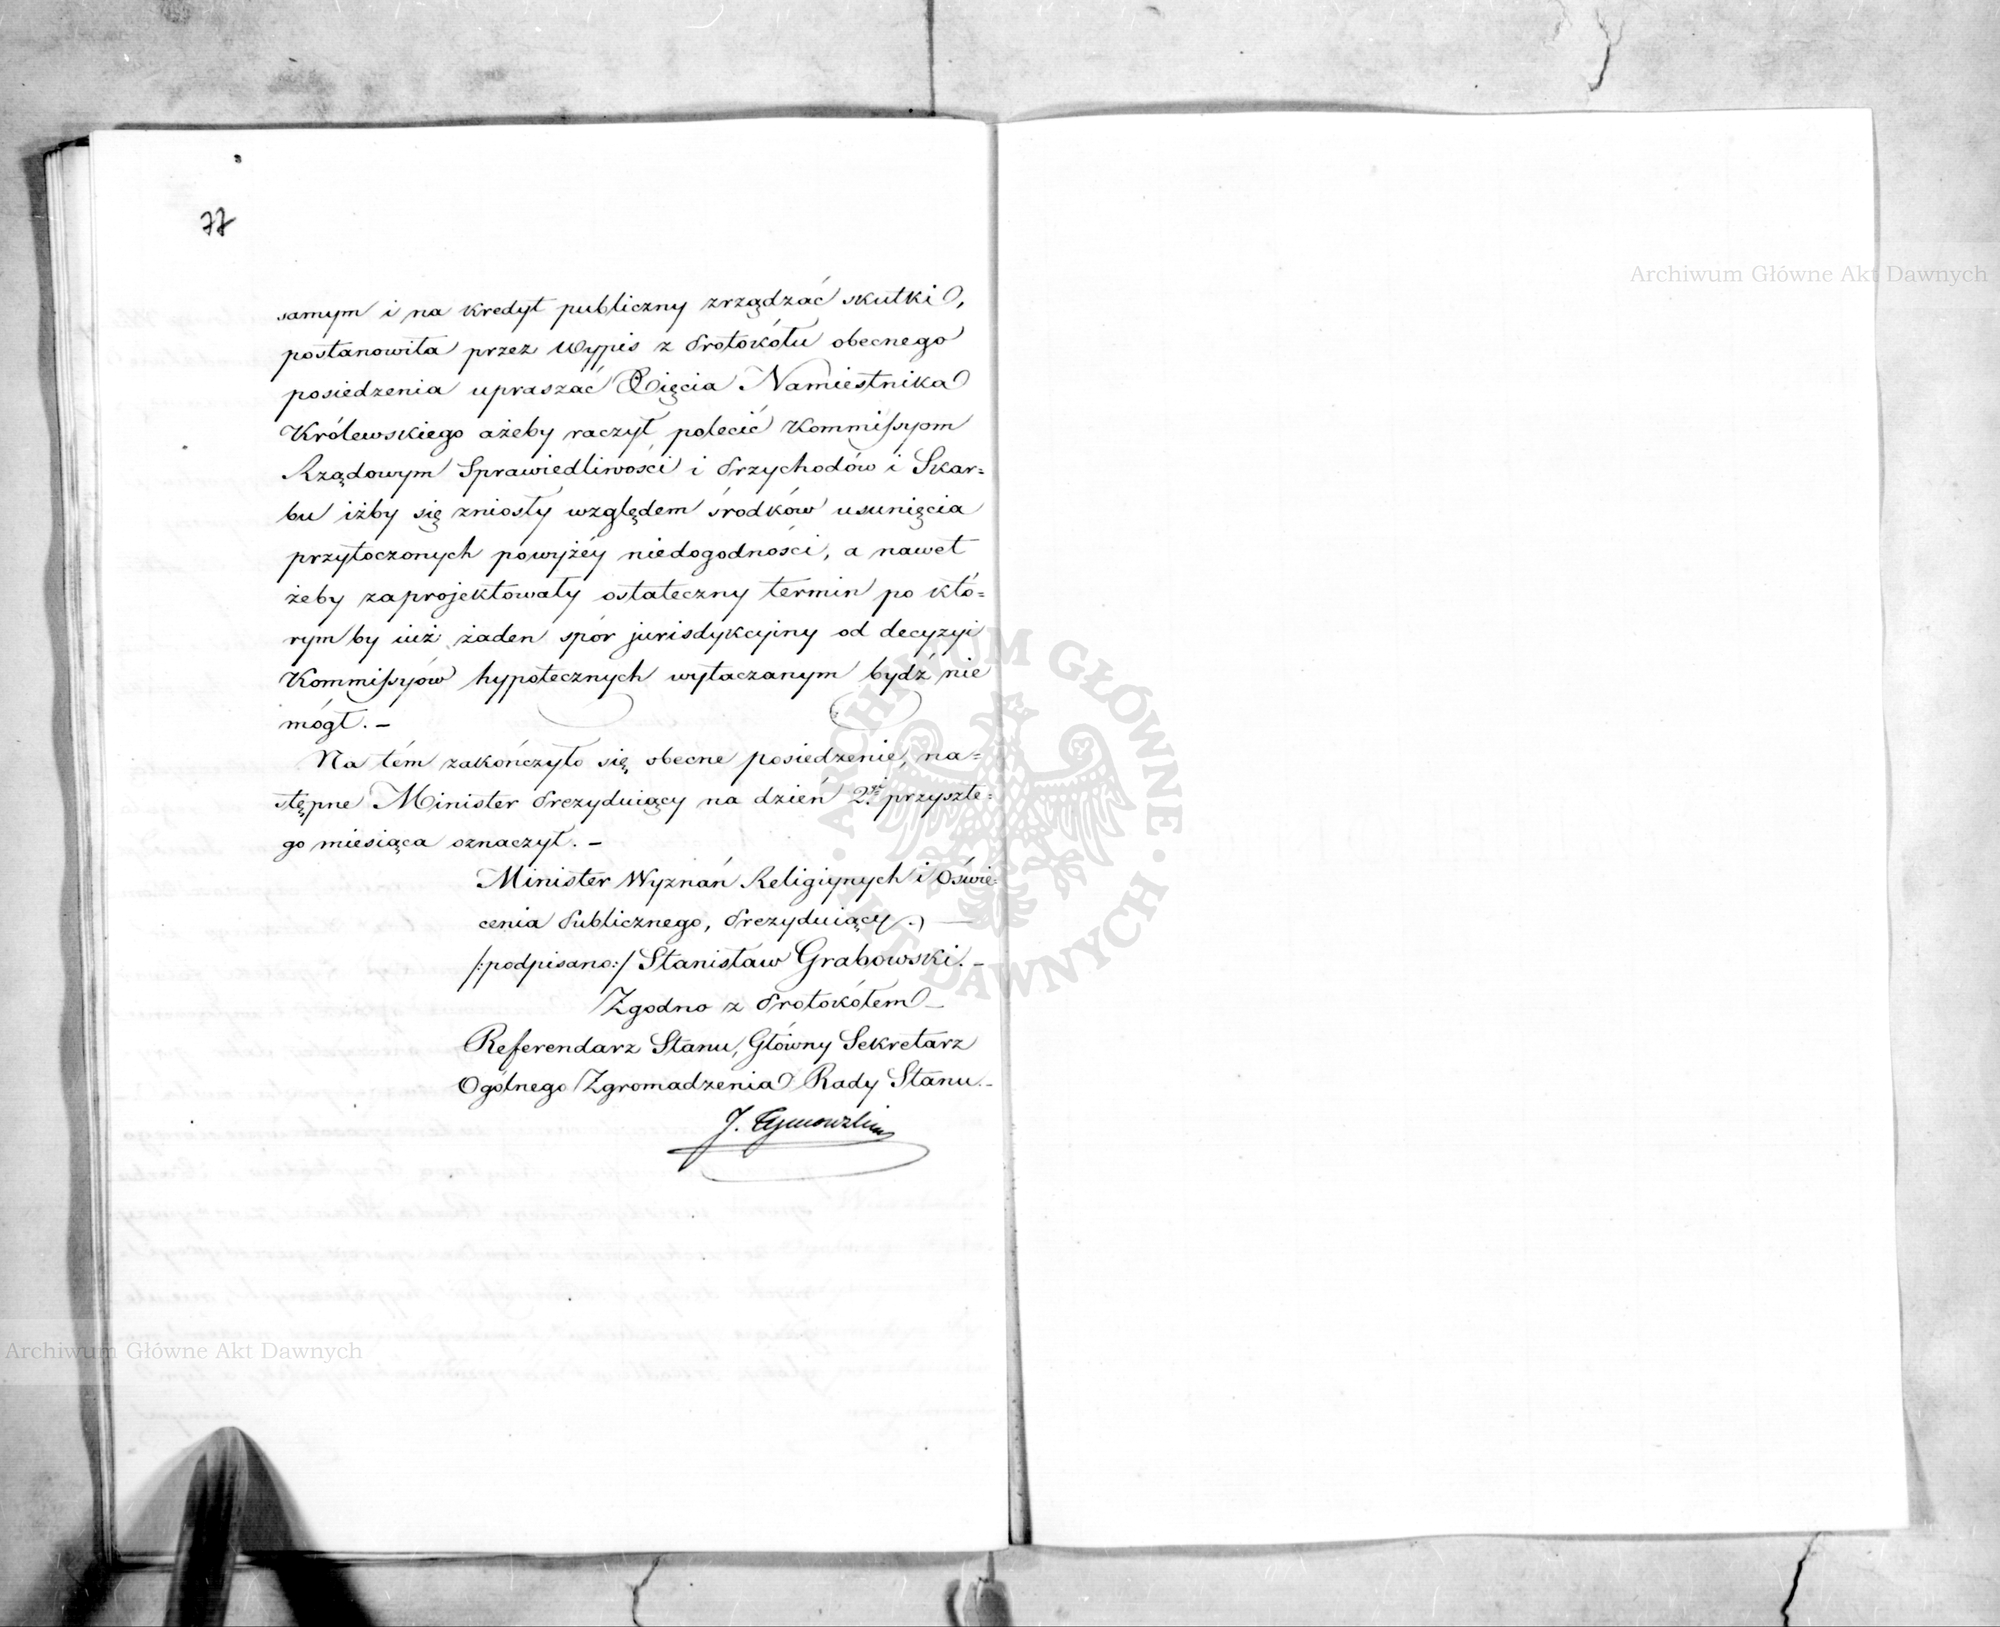 77
samym i na kredyt publiczny zrządzać skutki,
postanowiła przez Wypis z Protokółu obecnego
posiedzenia upraszać Xięcia Namiestnika
Królewskiego ażeby raczył polecić Kommissyom
Rządowym Sprawiedliwości i Przychodów i Skar=
bu iżby się zniosły względem środków usunięcia
przytoczonych powyżéy niedogodności, a nawet
żeby zaprojektowały ostateczny termin po któ=
rym by iuż żaden spór jurisdykcyiny od decyzyi
Kommissyów hypotecznych wytaczanym bydź nie
mógł. –
Na tém zakończyło się obecne posiedzenie, na=
stępne Minister Prezyduiący na dzień 2.gi przyszłe=
go miesiąca oznaczył. –
Minister Wyznań Religiynych i Oświe=
cenia Publicznego, Prezyduiący.) —
/:podpisano:/ Stanisław Grabowski. –
Zgodno z Protokółem –
Referendarz Stanu, Główny Sekretarz
Ogólnego Zgromadzenia Rady Stanu. –
J. Tymowski
Archiwum Główne Akt Dawnych
ARCHIWUM GŁÓWNE AKT DAWNYCH
Archiwum Główne Akt Dawnych